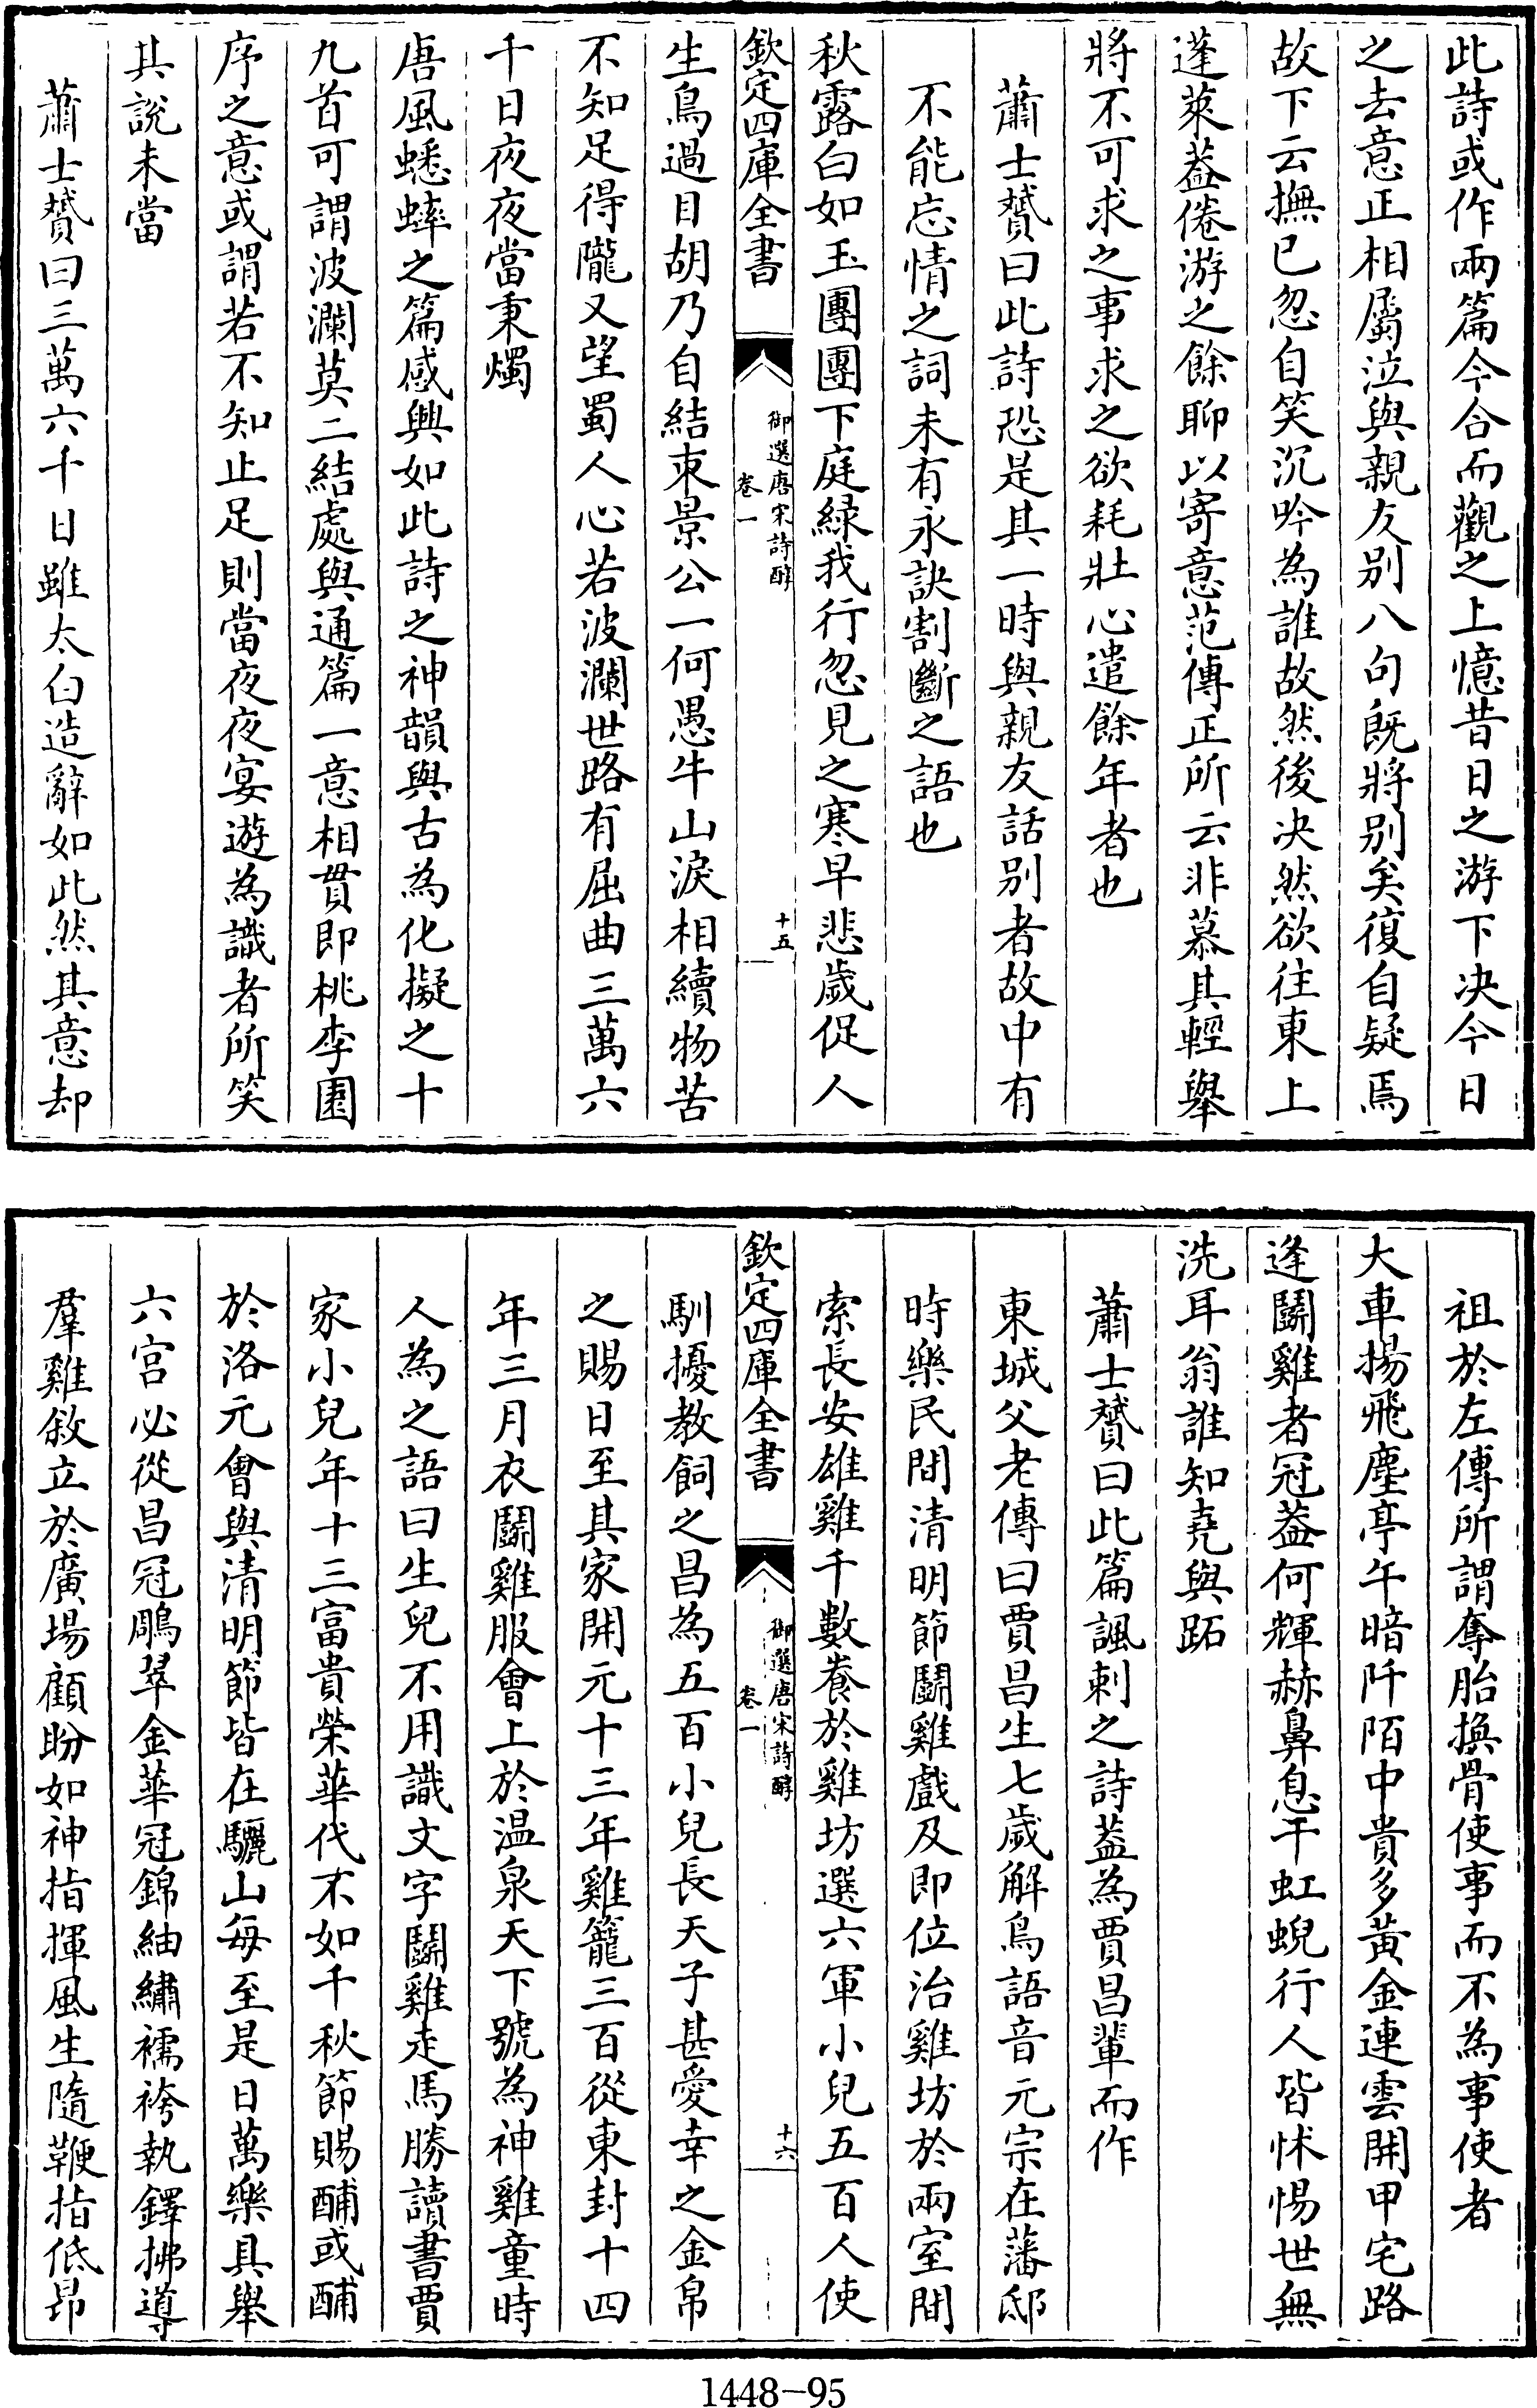 此詩或作兩篇今合而觀之上憶昔日之游下决今日
之去意正相屬泣與親友别八句既將别矣復自疑焉
故下云撫已忽自笑沉吟為誰故然後决然欲往東上
蓬萊葢倦游之餘聊以寄意范傳正所云非慕其輕舉
將不可求之事求之欲耗壯心遣餘年者也
蕭士贇曰此詩恐是其一時與親友話别者故中有
不能忘情之詞未有永訣割斷之語也
秋露白如玉團團下庭緑我行忽見之寒早悲歲促人
欽定四庫全書
御選唐宋詩醇
卷一
十五
生鳥過目胡乃自結束景公一何愚牛山淚相續物苦
不知足得隴又望蜀人心若波瀾世路有屈曲三萬六
千日夜夜當秉燭
唐風蟋蟀之篇感興如此詩之神韻與古為化擬之十
九首可謂波瀾莫二結處與通篇一意相貫即桃李園
序之意或謂若不知止足則當夜夜宴遊為識者所笑
其說未當
蕭士贇曰三萬六千日雖太白造辭如此然其意却
祖於左傳所謂奪胎換骨使事而不為事使者
大車揚飛塵亭午暗阡陌中貴多黃金連雲開甲宅路
逢鬬雞者冠葢何輝赫鼻息干虹蜺行人皆怵惕世無
洗耳翁誰知堯與跖
蕭士贇曰此篇諷刺之詩葢為賈昌輩而作
東城父老傳曰賈昌生七歲解鳥語音元宗在藩邸
時樂民間清明節鬬雞戲及即位治雞坊於兩室間
索長安雄雞千數養於雞坊選六軍小兒五百人使
欽定四庫全書
御選唐宋詩醇
卷一
十六
馴擾教飼之昌為五百小兒長天子甚愛幸之金帛
之賜日至其家開元十三年雞籠三百從東封十四
年三月衣鬬雞服會上於温泉天下號為神雞童時
人為之語曰生兒不用識文字鬬雞走馬勝讀書賈
家小兒年十三富貴榮華代不如千秋節賜酺或酺
於洛元會與清明節皆在驪山每至是日萬樂具舉
六宫必從昌冠鵰翠金華冠錦紬繡襦袴執鐸拂導
羣雞敘立於廣場顧盼如神指揮風生隨鞭指低昂
1448-95